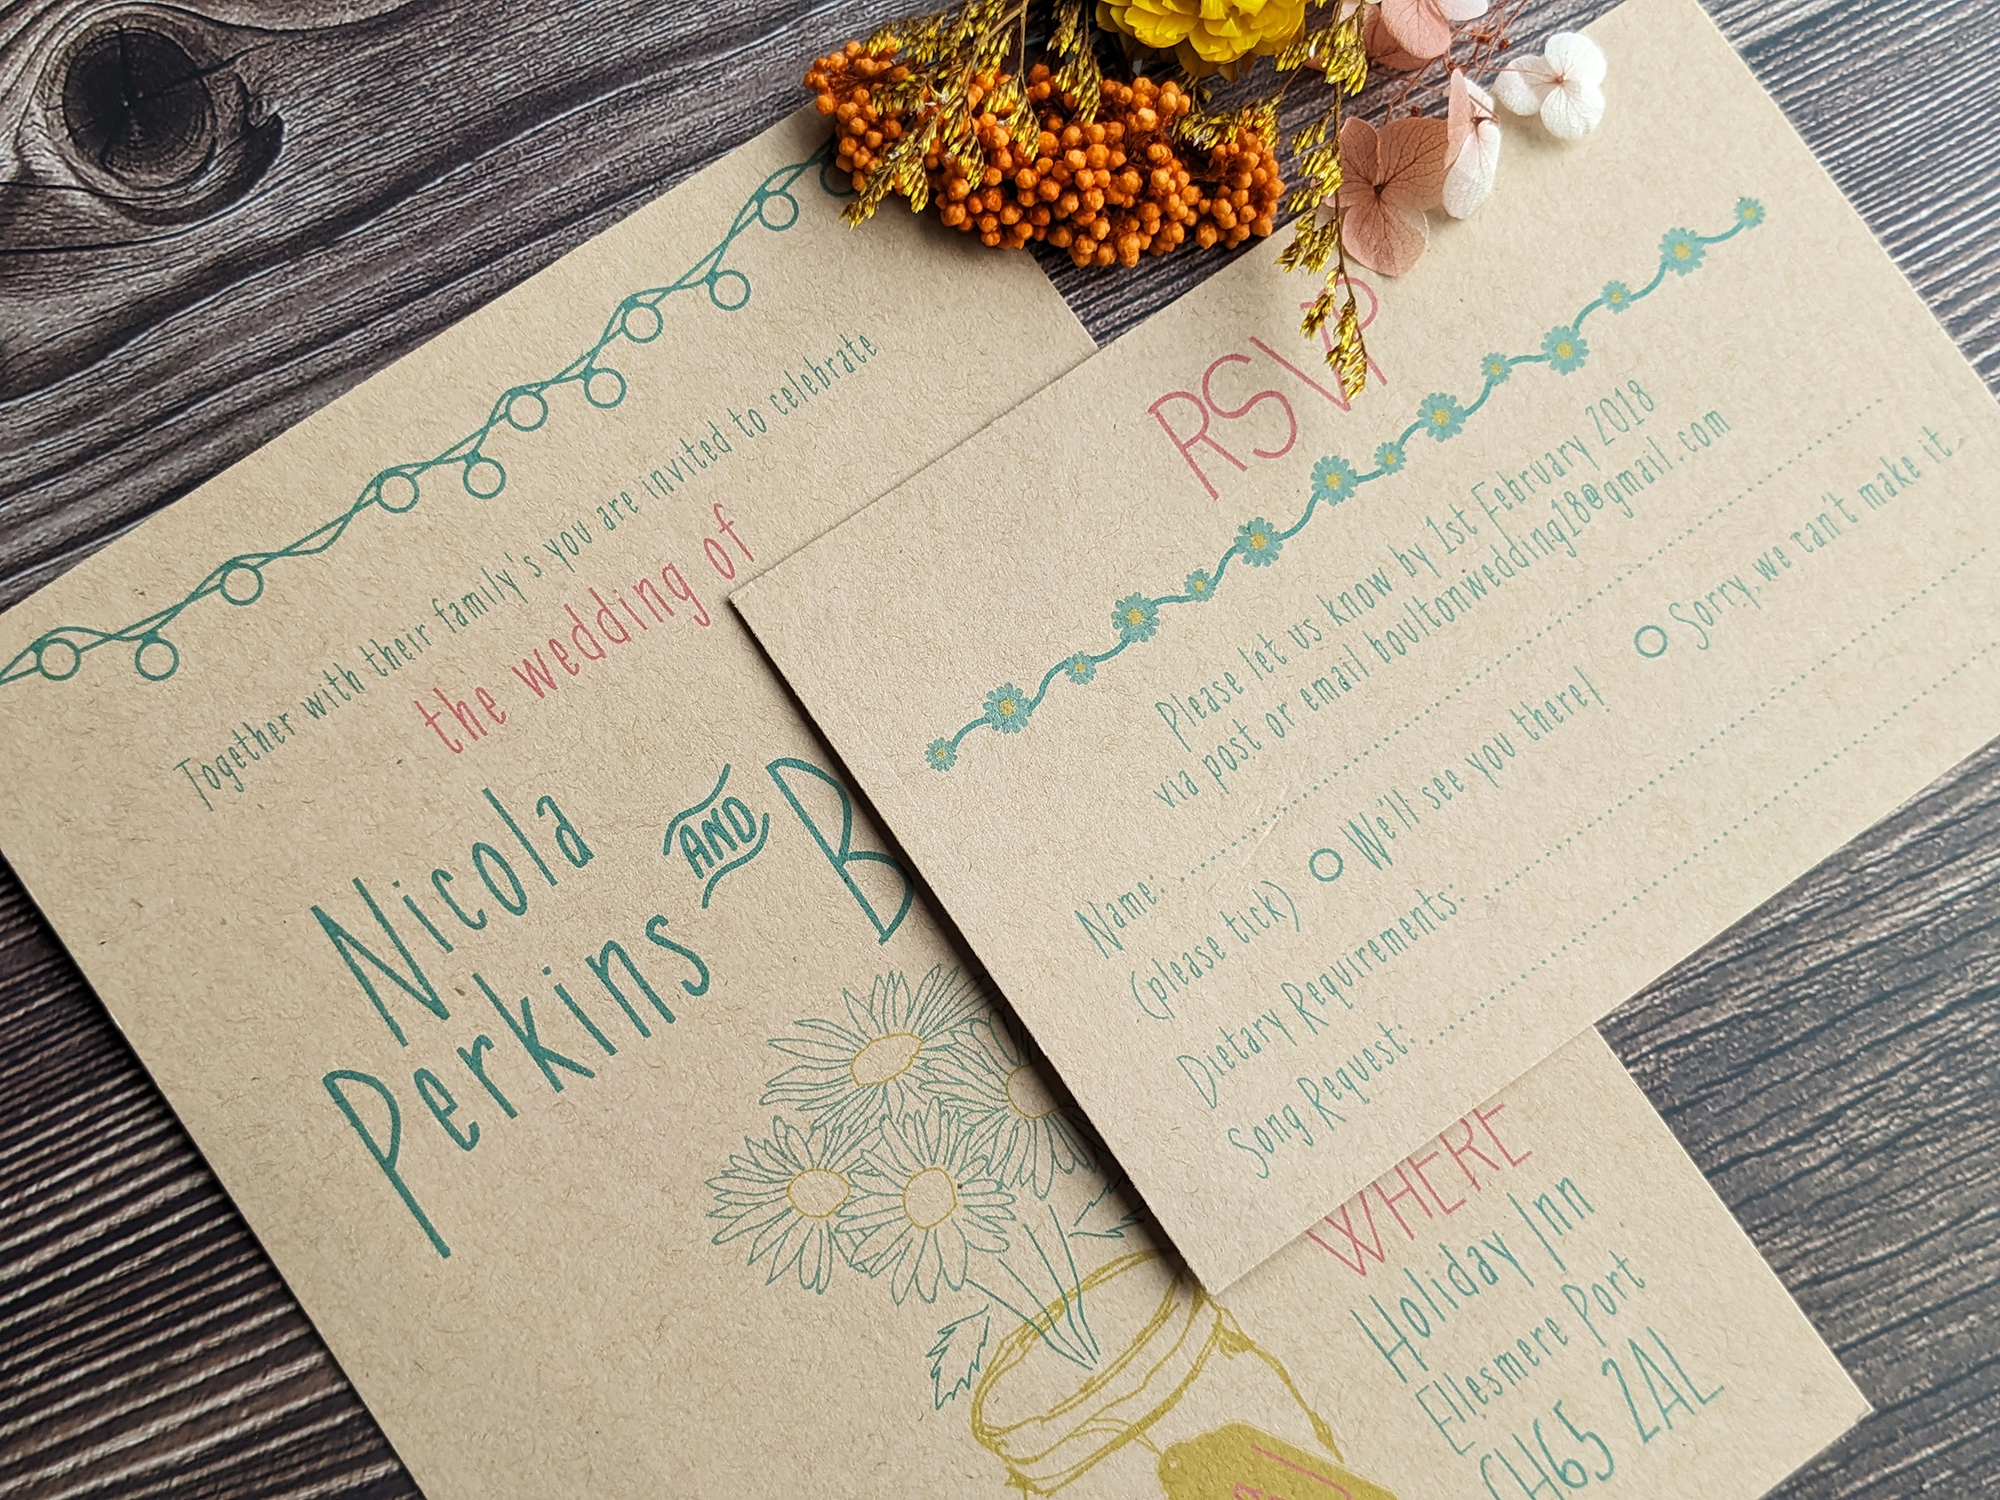 Together with their family's you are invited to celebrate
the wedding of
Nicola
Perkins
AND
B
RSVP
Please let us know by 1st February 2018
via post or email boultonwedding18@gmail.com
Name:
(please tick) We'll see you there! Sorry, we can't make it
Dietary Requirements:
Song Request:
WHERE
Holiday Inn
Ellesmere Port
CH65 2AL